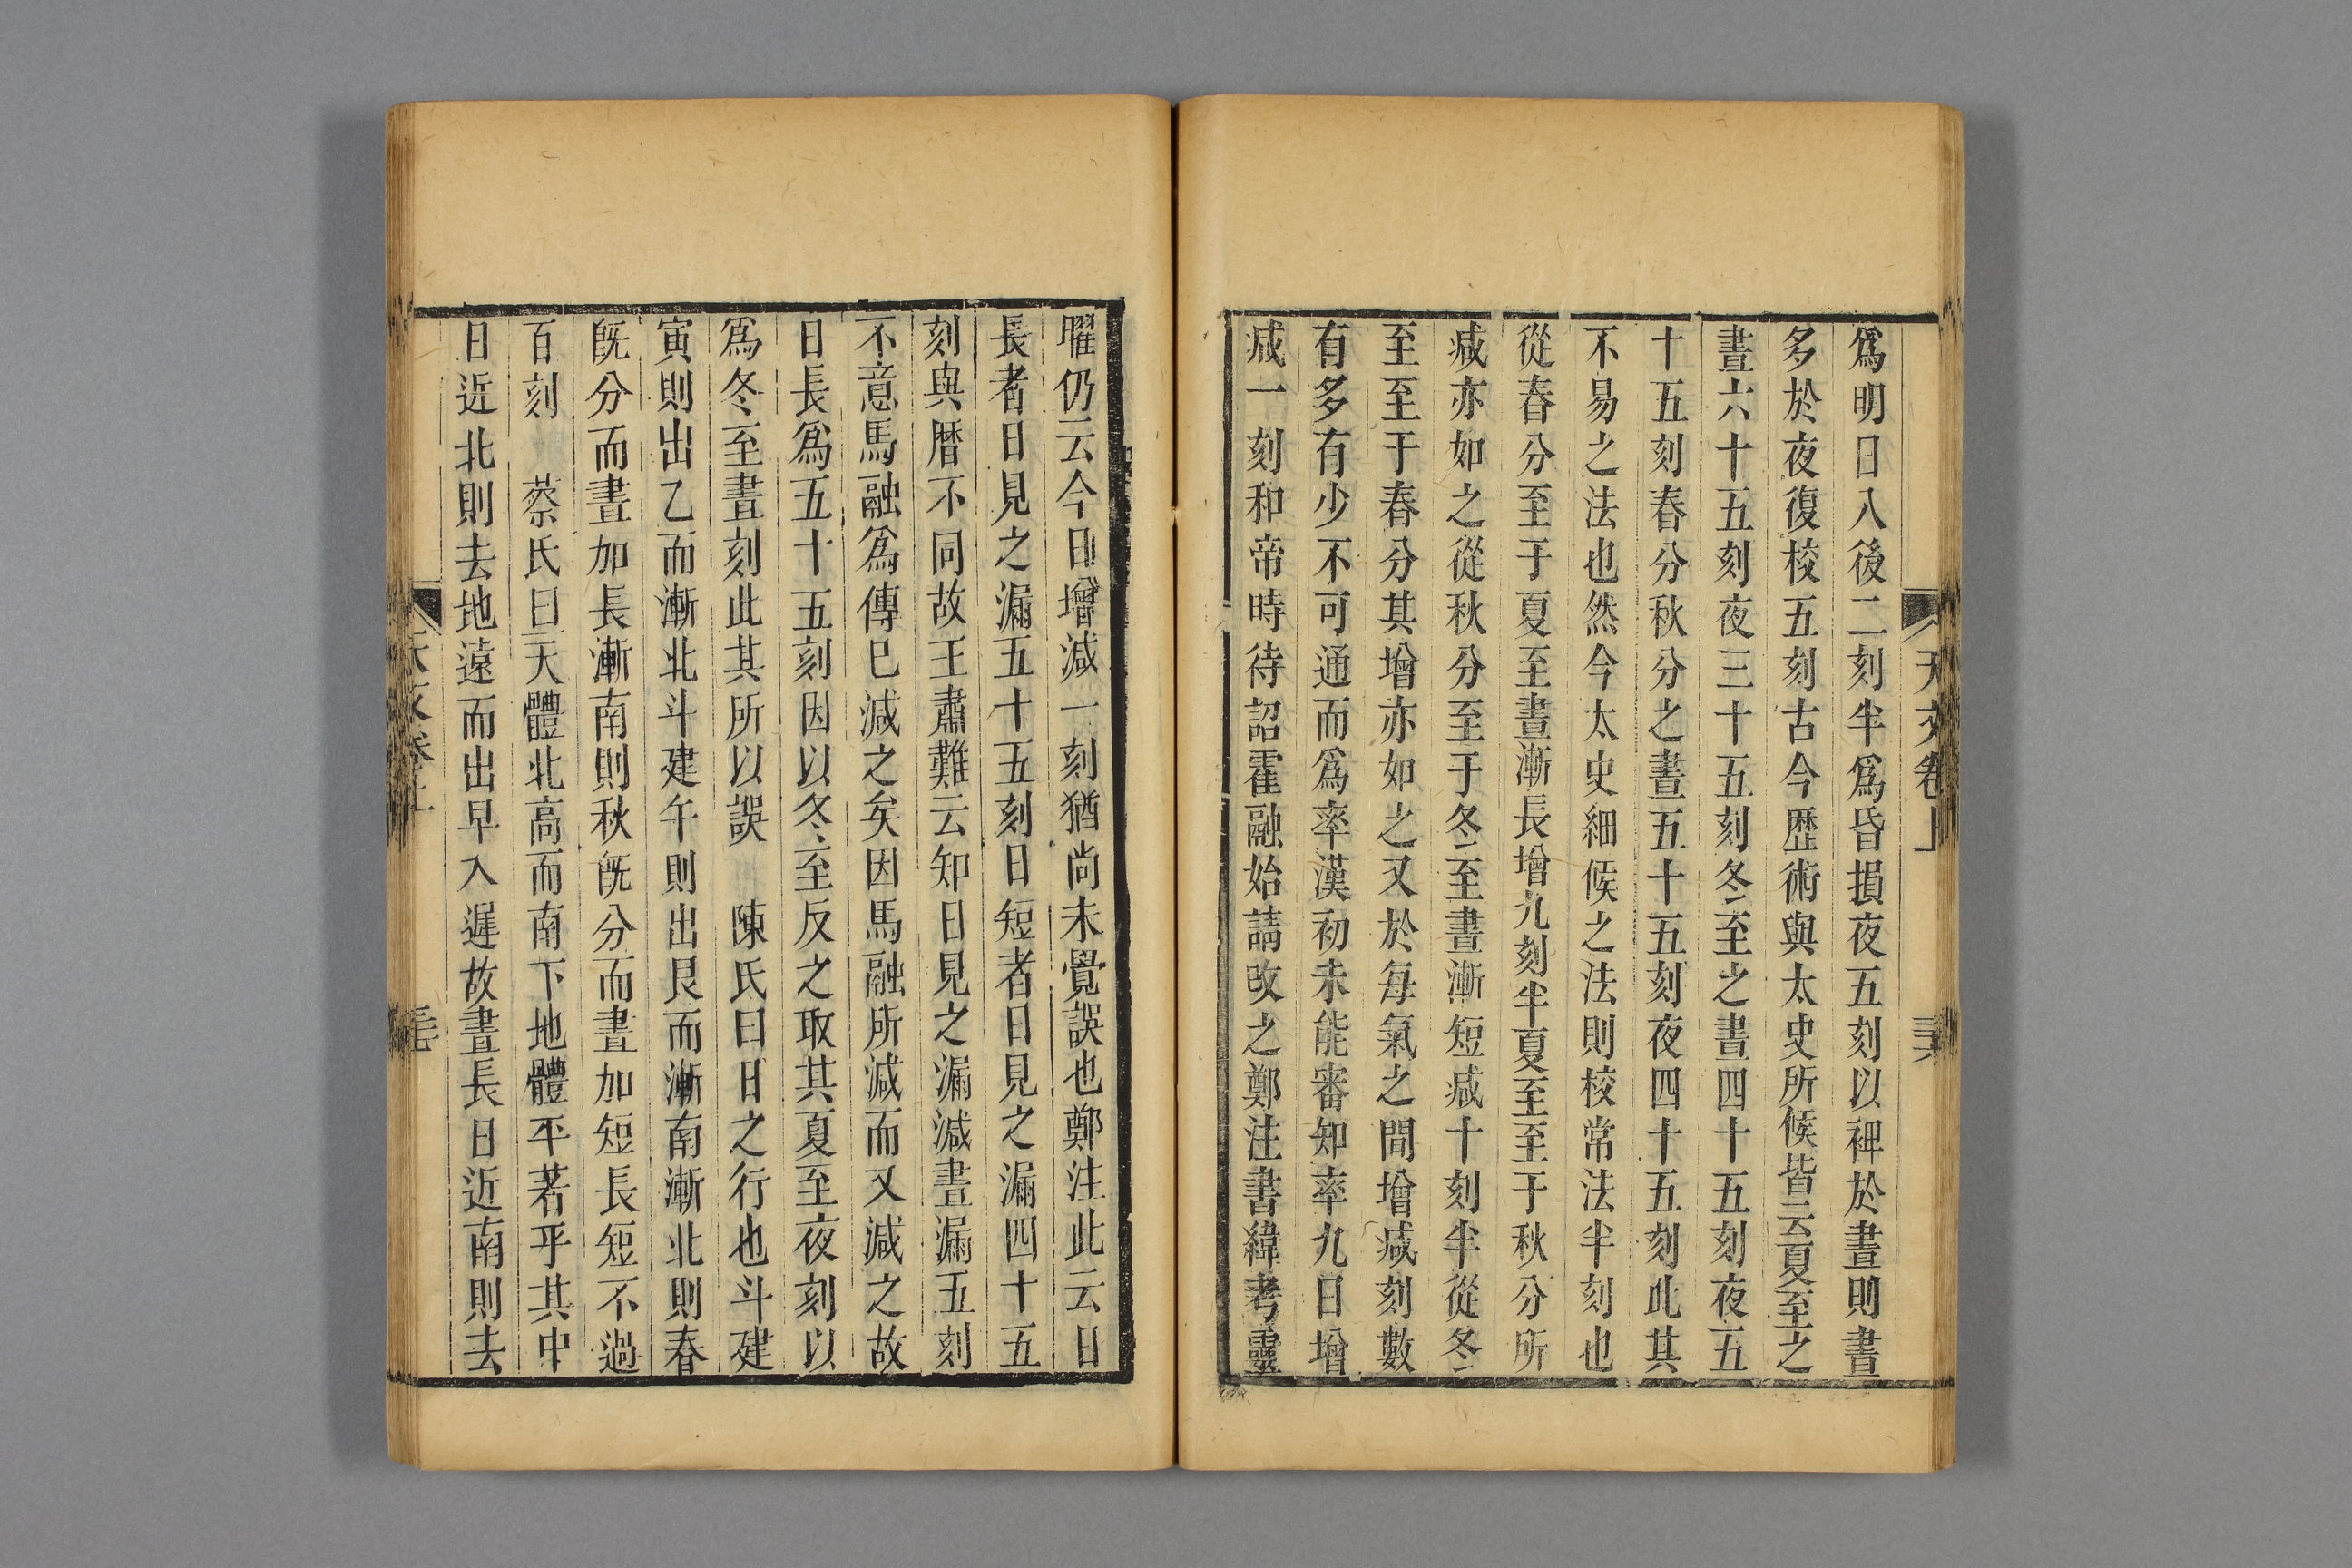 爲明日入後二刻半爲昏損夜五刻以裨於晝則晝
多於夜復校五刻古今歴術與太史所候皆云夏至之
晝六十五刻夜三十五刻冬至之晝四十五刻夜五
十五刻春分秋分之晝五十五刻夜四十五刻此其
不易之法也然今太史細候之法則校常法半刻也
從春分至于夏至晝漸長增九刻半夏至至于秋分所
减亦如之從秋分至于冬至晝漸短减十刻半從冬
至至于春分其增亦如之又於每氣之間增减刻數
有多有少不可通而爲率漢初未能審知率九日增
减一刻和帝時待詔霍融始請改之鄭注書緯考靈
天文卷上
三六
曜仍云今日增減一刻猶尚未覺誤也鄭注此云日
長者日見之漏五十五刻日短者日見之漏四十五
刻與暦不同故王肅難云知日見之漏減晝漏五刻
不意馬融爲傳巳減之矣因馬融所減而又減之故
日長爲五十五刻因以冬至反之取其夏至夜刻以
爲冬至晝刻此其所以誤　陳氏曰日之行也斗建
寅則出乙而漸北斗建午則出艮而漸南漸北則春
旣分而晝加長漸南則秋旣分而晝加短長短不過
百刻　蔡氏曰天體北高而南下地體平著乎其中
日近北則去地遠而出早入遲故晝長日近南則去